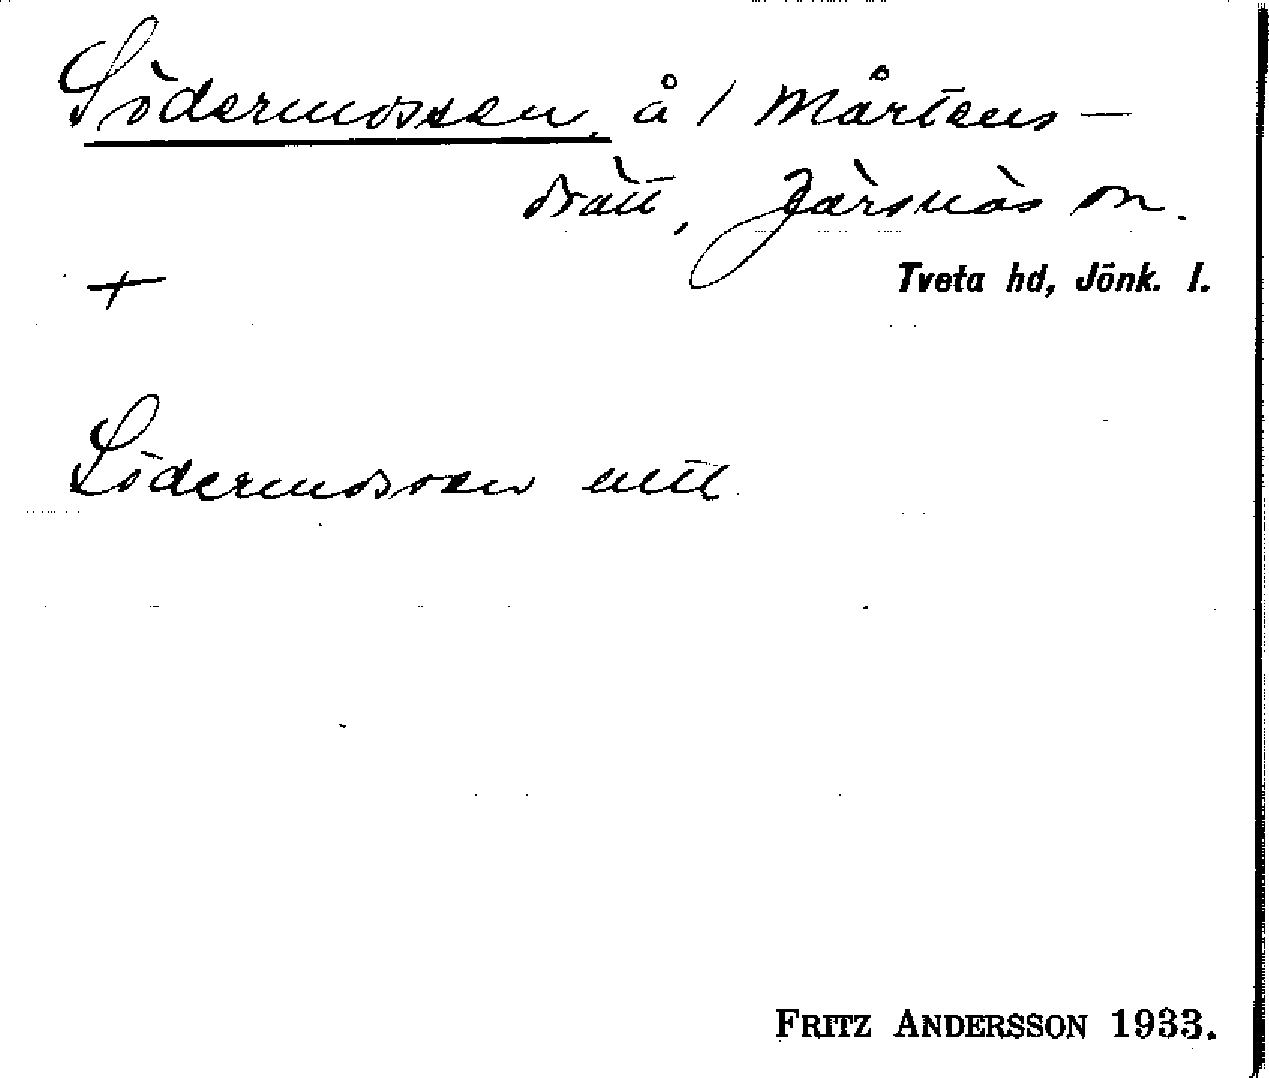 Södermossen, å 1 Mårtens-
drätt, Järsnäs sn.
+
Tveta hd, Jönk. l.
Södermossen
FRITZ ANDERSSON 1933.